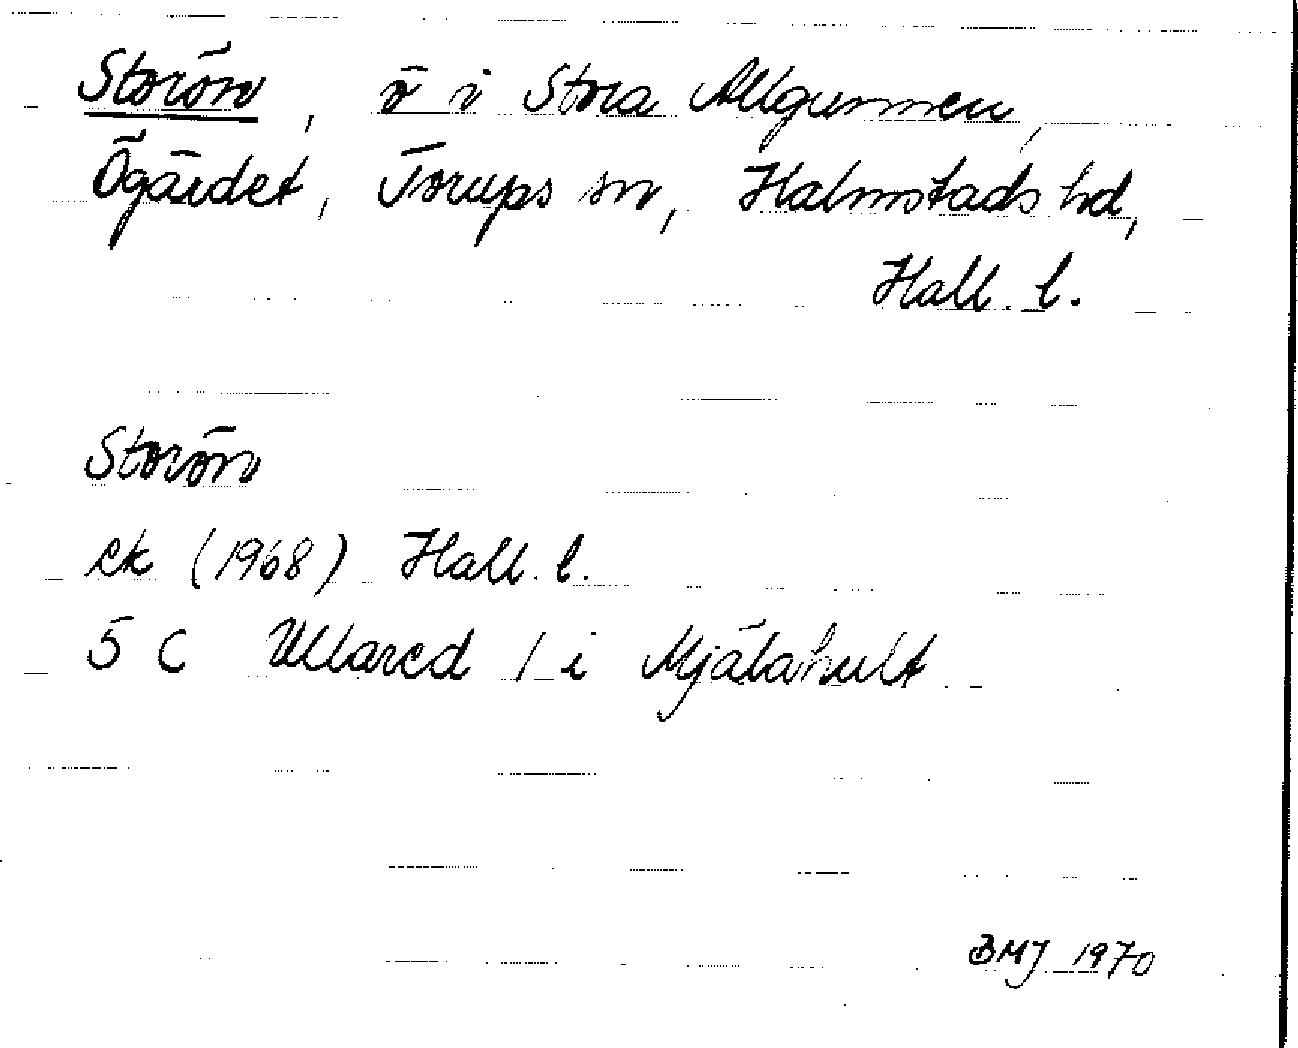 Storön, ö i Stora Allgunnen,
Ögärdet, Torups sn, Halmstads hd,
Hall. l.
Storön
ek (1968) Hall. l.
5 C Ullared / i Mjälahult
BMJ 1970